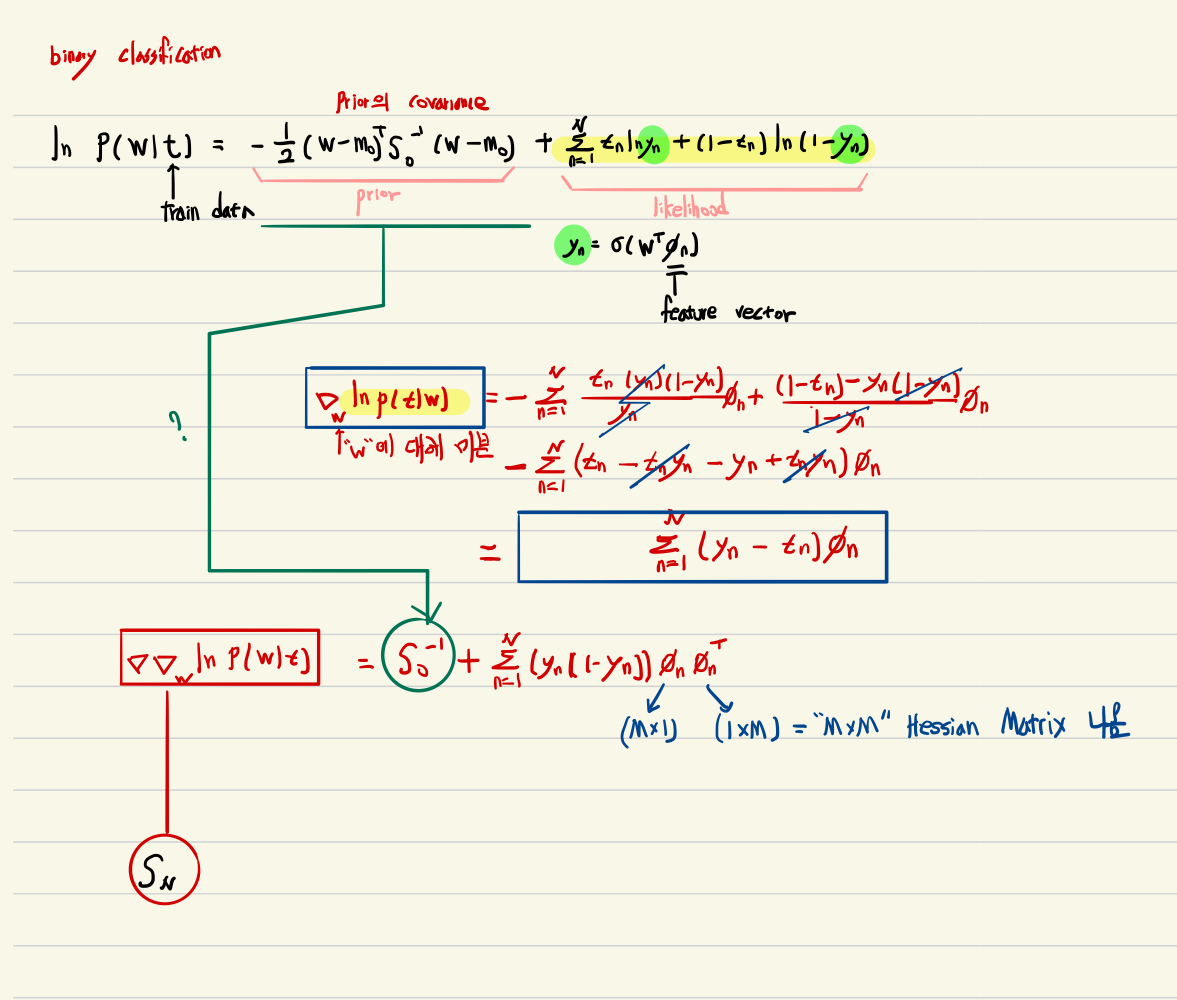 binary classification
Prior의 covariance
ln P(W|t) = - 1/2 (W-m₀)ᵀS₀⁻¹ (W-m₀) + Σₙ₌₁ᴺ tₙ ln yₙ + (1-tₙ) ln (1-yₙ)
prior
likelihood
train data
yₙ = σ(Wᵀ∅ₙ)
feature vector
∇_w ln p(t|w) = - Σₙ₌₁ᴺ tₙ (yₙ)(1-yₙ)/yₙ ∅ₙ + (1-tₙ)-yₙ(1-yₙ)/1-yₙ ∅ₙ
?
"w"에 대해 미분
- Σₙ₌₁ᴺ (tₙ - tₙyₙ - yₙ + tₙyₙ) ∅ₙ
= Σₙ₌₁ᴺ (yₙ - tₙ) ∅ₙ
∇∇_w ln P(w|t) = S₀⁻¹ + Σₙ₌₁ᴺ (yₙ(1-yₙ)) ∅ₙ ∅ₙᵀ
(M×1) (1×M) = "M×M" Hessian Matrix
S_N